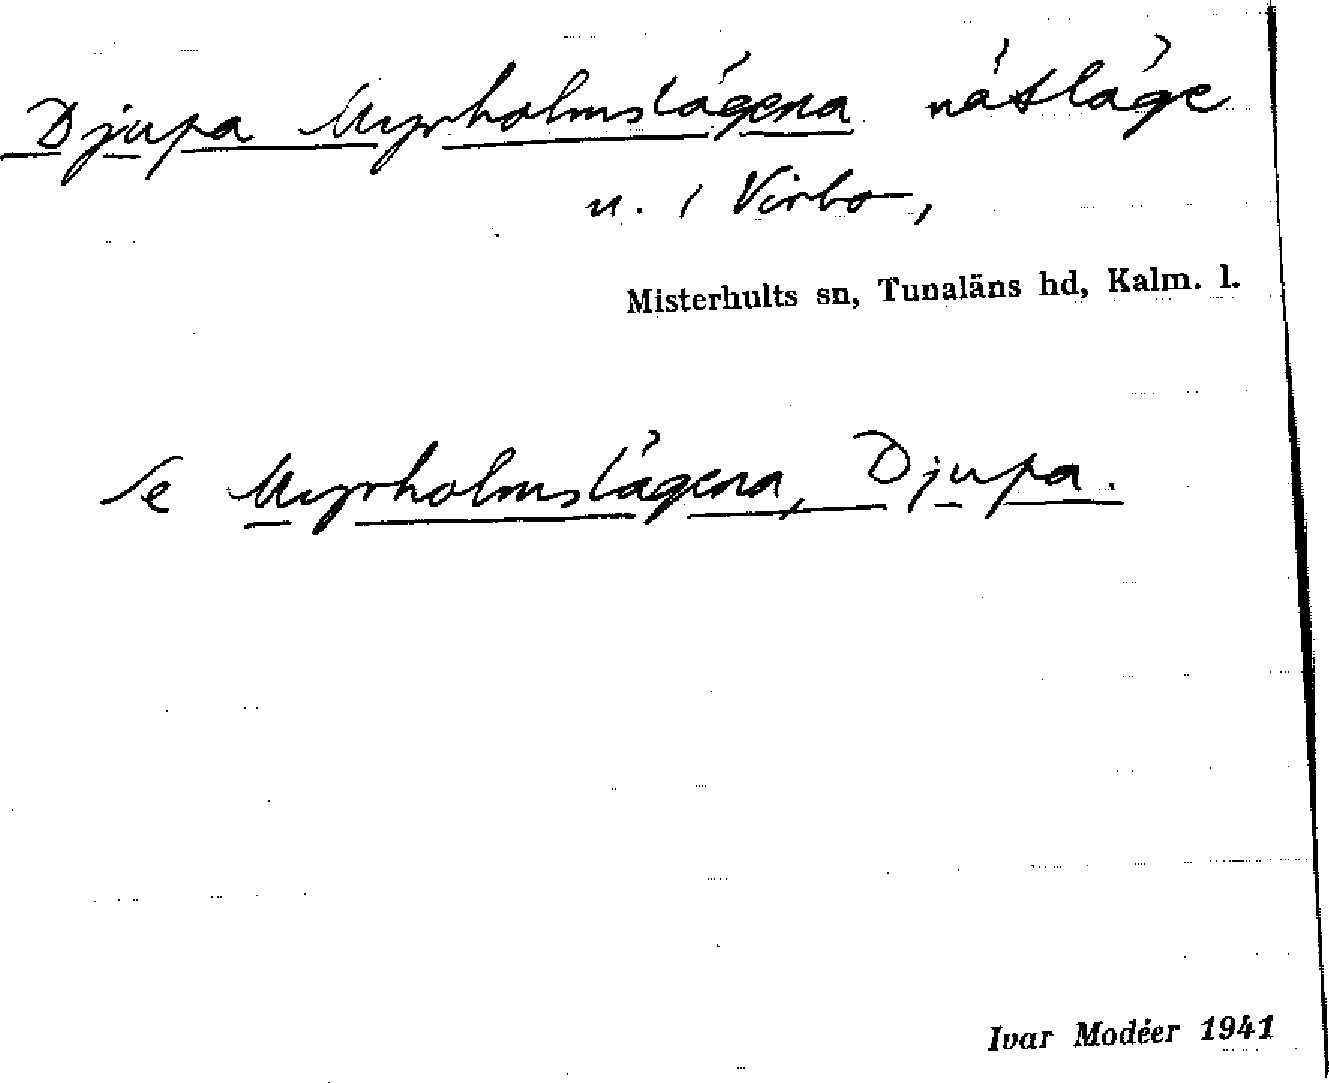 Djupa Myrholmslägena nätläge
u. i Virbo,
Misterhults sn, Tunaläns hd, Kalm. l.
Se Myrholmslägena, Djupa.
Ivar Modéer 1941